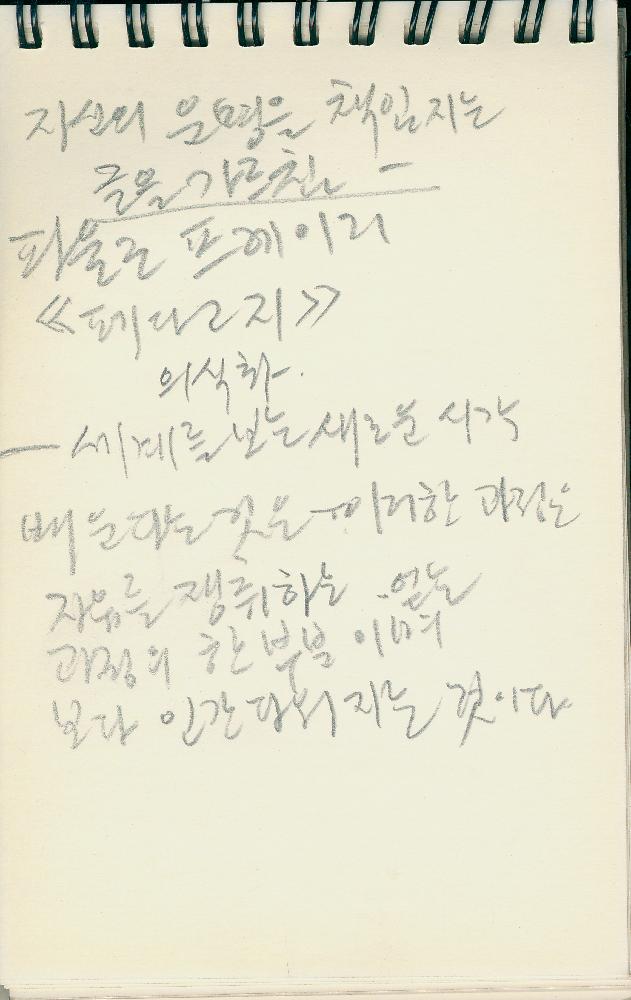 자신의 운명을 책임지는
글을 가르친 -
파울로 프레이리
《페다고지》
의식화.
- 세계를 보는 새로운 시각
배운다는 것은 - 이러한 과정은
자유를 쟁취하는 . 얻는
과정의 한 부분이며
보다 인간다워지는 것이다